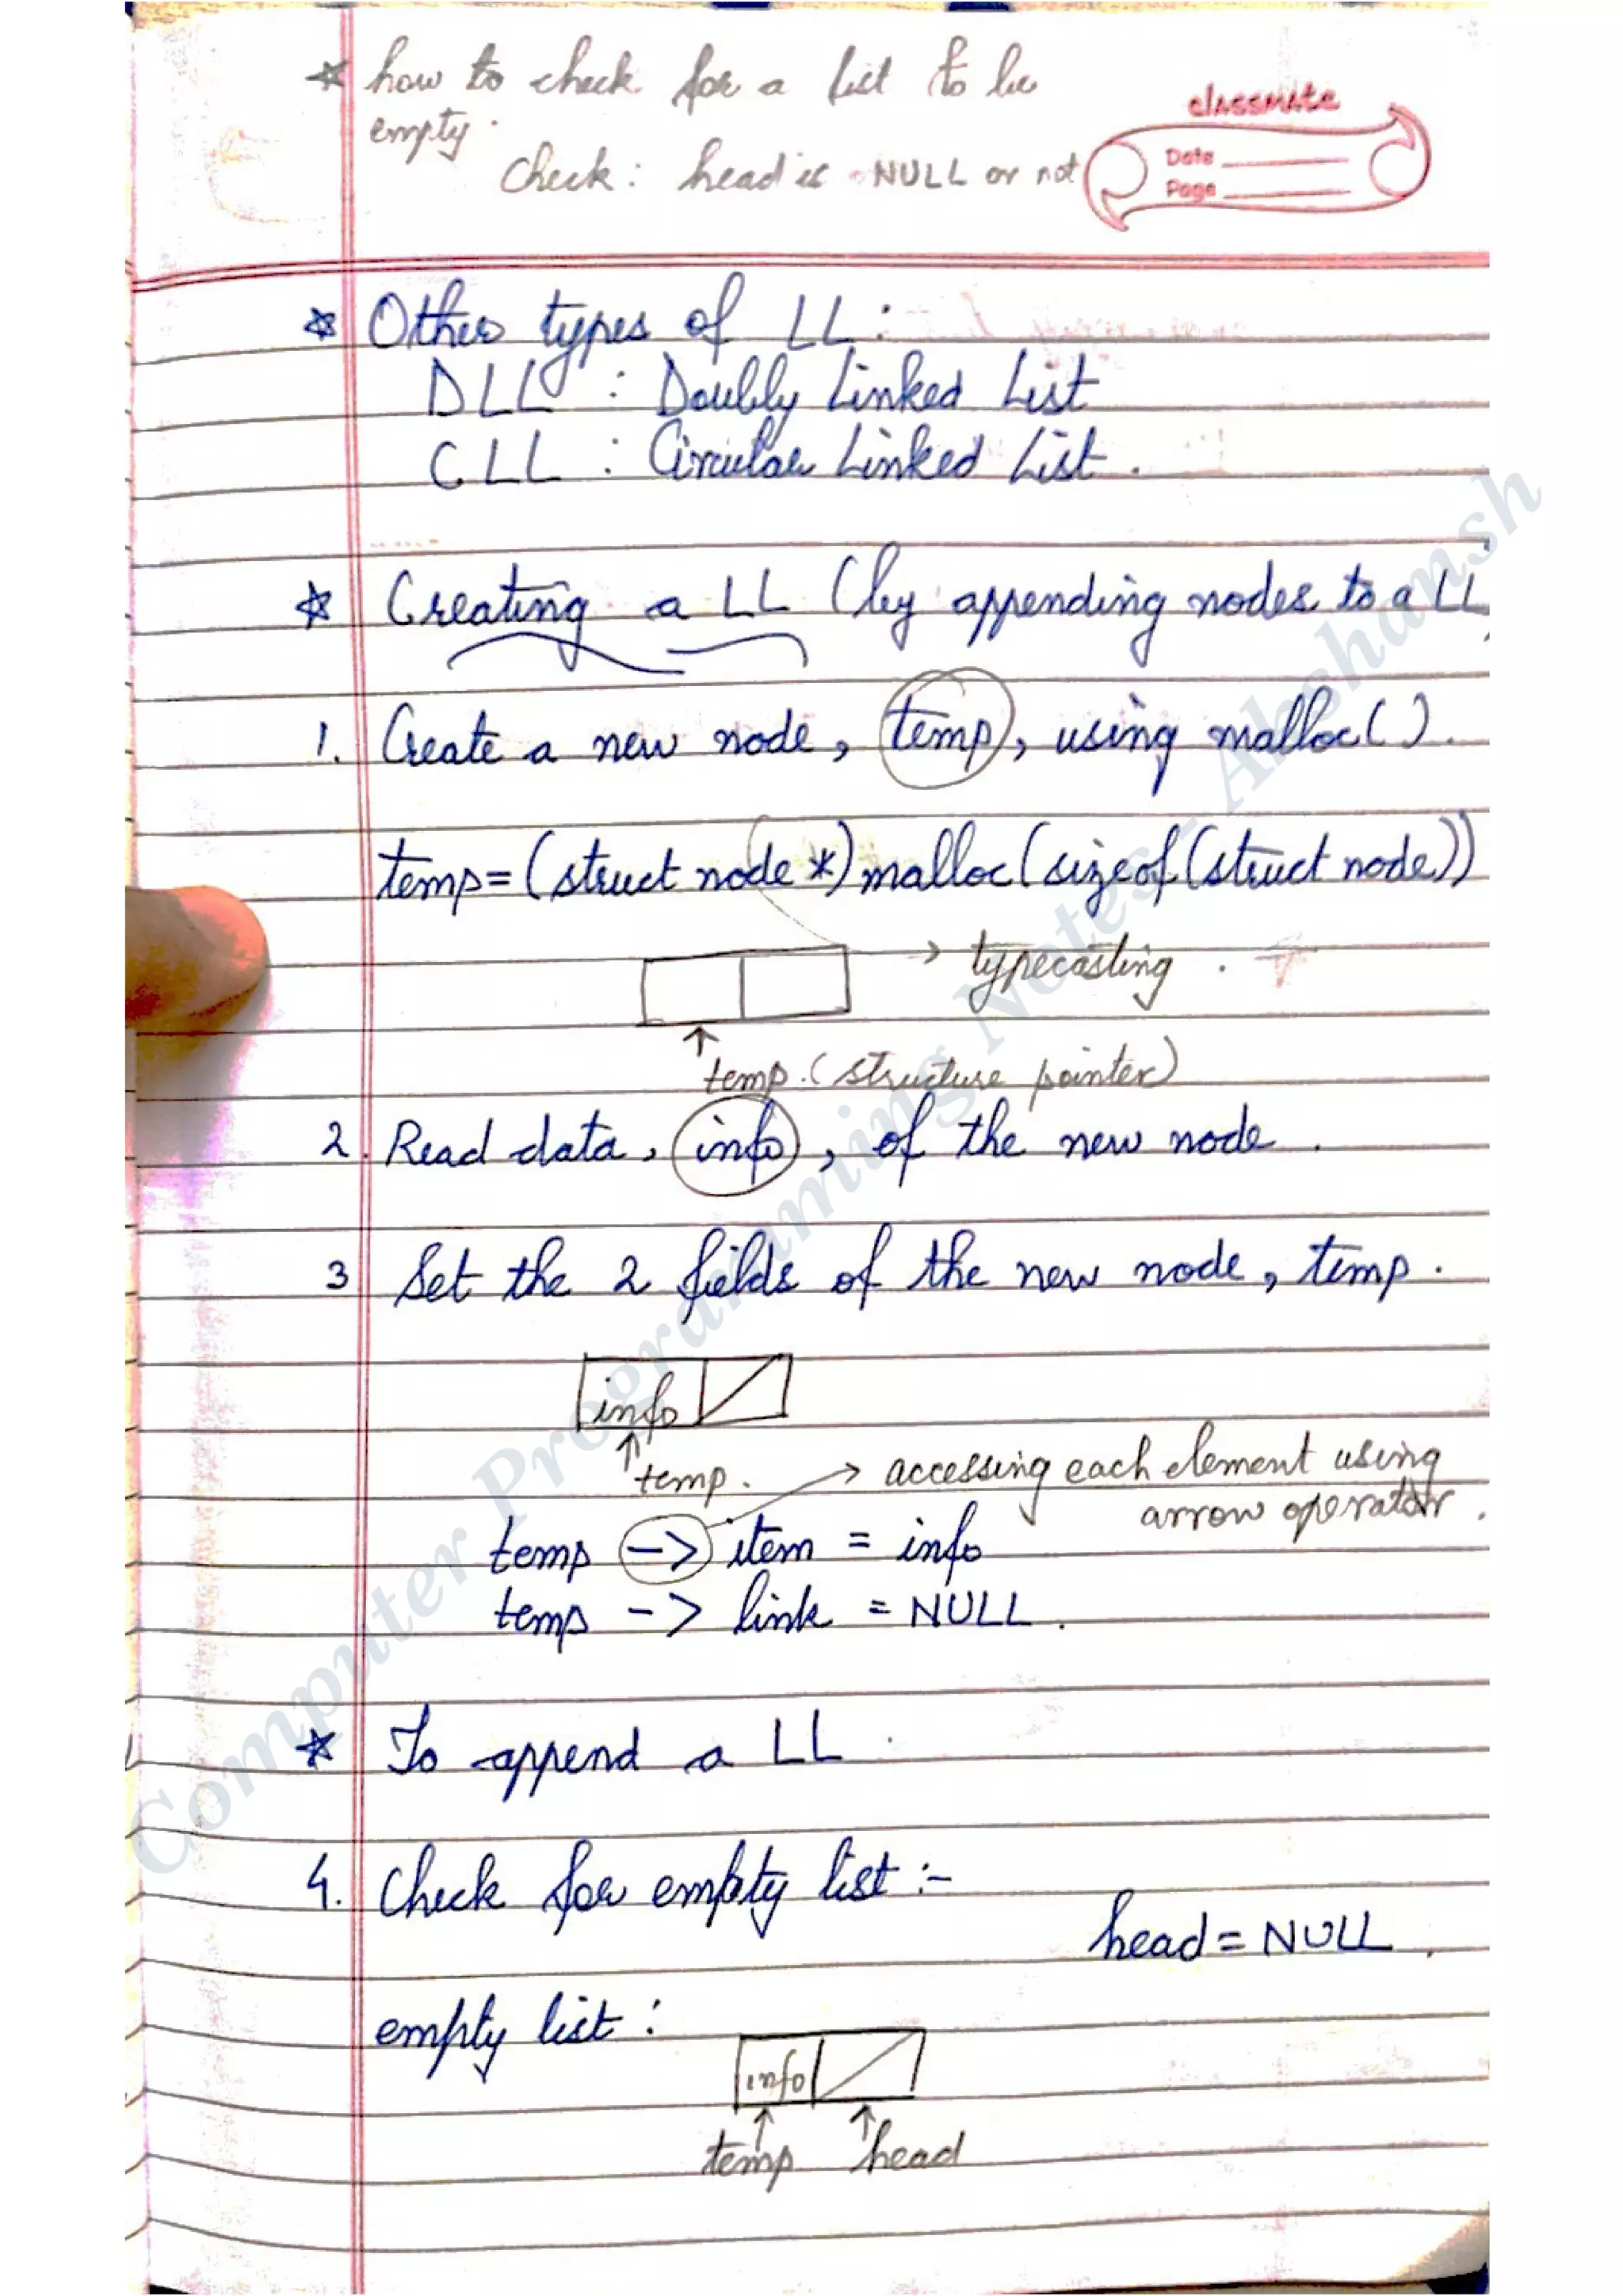 * how to check for a list to be
empty.
check: head is NULL or not
classmate
Date
Page
* Other types of LL:
DLL : Doubly Linked List
CLL : Circular Linked List.
* Creating a LL (by appending nodes to a LL
1. Create a new node, temp, using malloc().
temp=(struct node *)malloc(sizeof(struct node))
→ typecasting.
↑
temp.(structure pointer)
2. Read data, info, of the new node.
3 Set the 2 fields of the new node, temp.
info
↑
temp.
→ accessing each element using
arrow operator.
temp -> item = info
temp -> link = NULL.
* To append a LL.
4. Check for empty list :-
head = NULL.
empty list :
info
↑ ↑
temp head
Computer Programming Notes - Akshansh